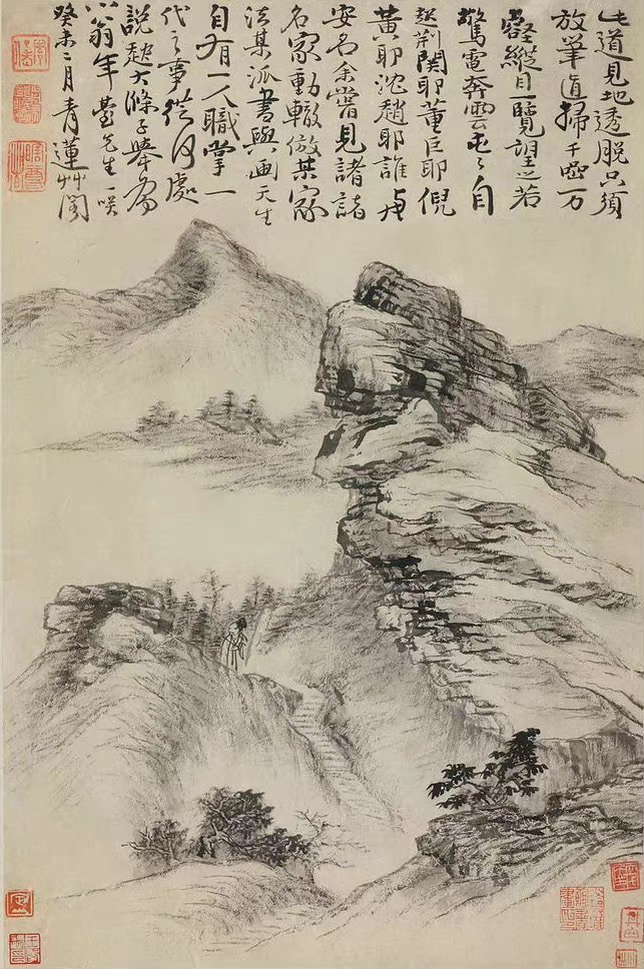 此道見地透脫只須
放筆直掃千巖万
壑縱目一覽望之若
驚電奔雲屯々自
起荊關耶董巨耶倪
黃耶沈趙耶誰與
安名余嘗見諸諸
名家動輒倣某家
法某派書與畫天生
自有一人職掌一
代之事從何處
說起大滌子舉為
翁年臺先生一咲
癸未二月青蓮艸閣